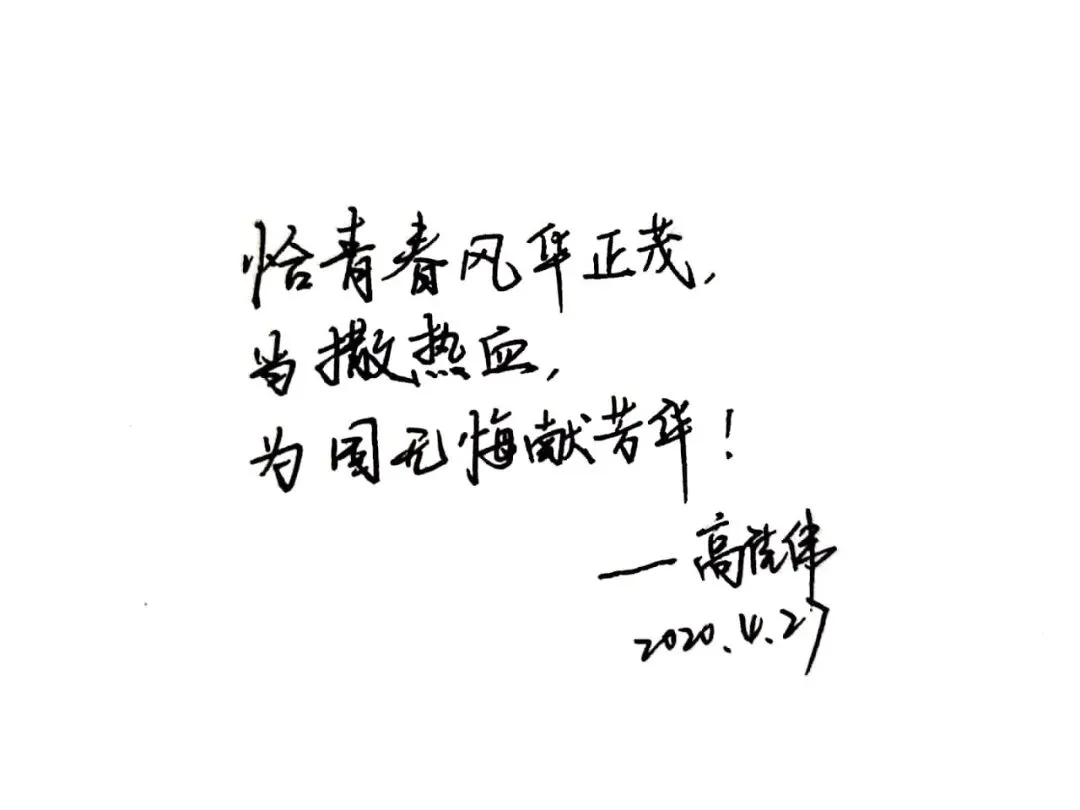 恰青春风华正茂，
当撒热血，
为国无悔献芳华！
——高佳伟
2020.4.27